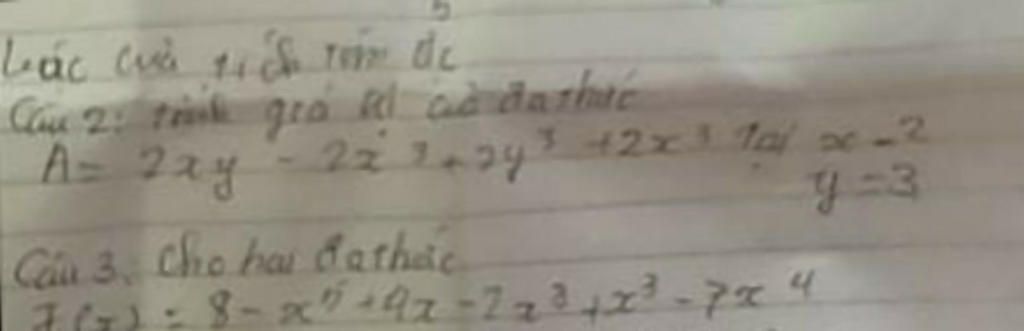 bậc của
Câu 2: tính giá trị của đa thức
A = 2xy - 2x³ + 2y³ + 2x³ tại x = 2
y = 3
Câu 3. Cho hai đa thức
f(x) = 8 - x⁵ + 4x - 2x³ + x³ - 7x⁴